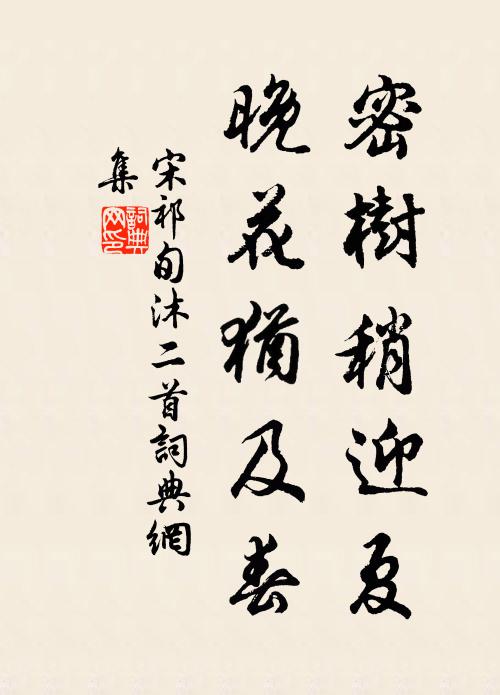 密樹稍迎夏
晚花猶及春
宋祁旬沐二首詞典網
集
詞典網印